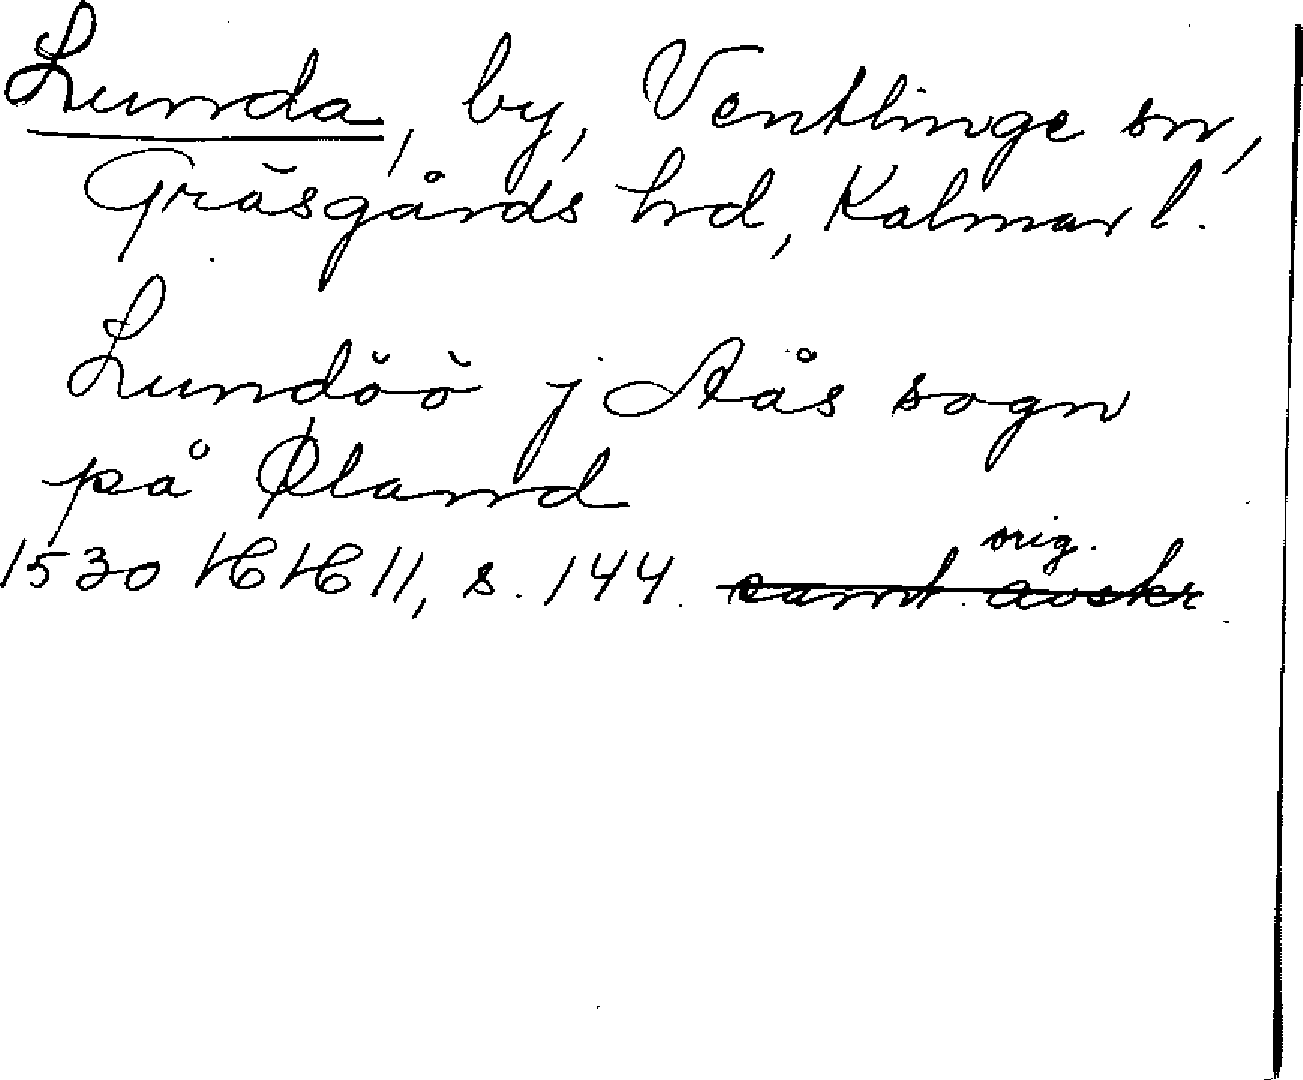 Lunda, by, Ventlinge sn,
Gräsgårds hrd, Kalmar l.
Lundöö j Aås sogn
på Øland
orig.
1530 HH 11, s. 144. samt. avskr